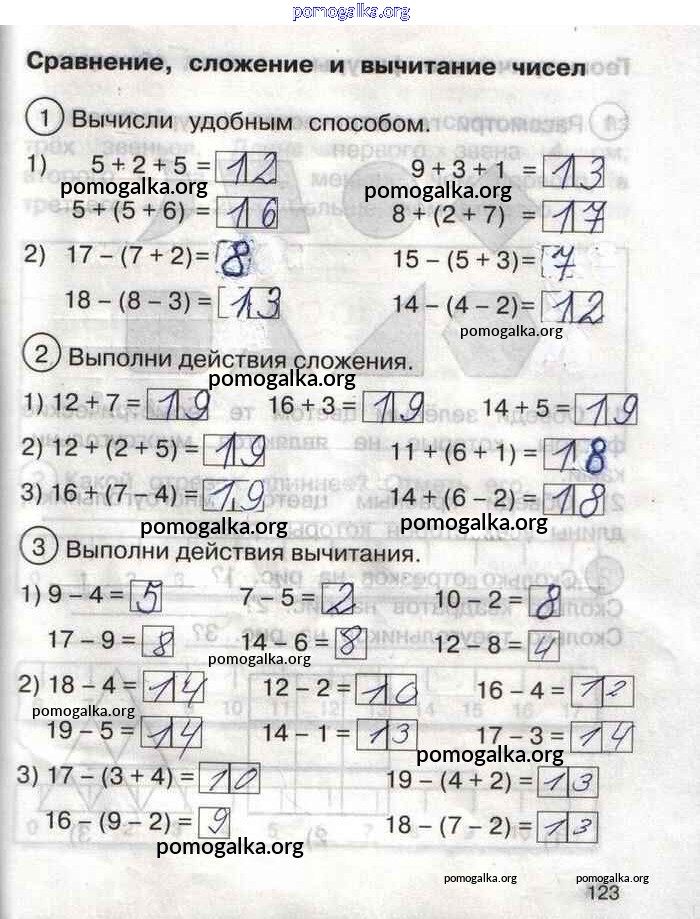 pomogalka.org
Сравнение, сложение и вычитание чисел
1 Вычисли удобным способом.
1) 5 + 2 + 5 = 12 9 + 3 + 1 = 13
pomogalka.org pomogalka.org
5 + (5 + 6) = 16 8 + (2 + 7) = 17
2) 17 – (7 + 2) = 8 15 – (5 + 3) = 7
18 – (8 – 3) = 13 14 – (4 – 2) = 12
pomogalka.org
2 Выполни действия сложения.
pomogalka.org
1) 12 + 7 = 19 16 + 3 = 19 14 + 5 = 19
2) 12 + (2 + 5) = 19 11 + (6 + 1) = 18
3) 16 + (7 – 4) = 19 14 + (6 – 2) = 18
pomogalka.org pomogalka.org
3 Выполни действия вычитания.
1) 9 – 4 = 5 7 – 5 = 2 10 – 2 = 8
17 – 9 = 8 14 – 6 = 8 12 – 8 = 4
pomogalka.org
2) 18 – 4 = 14 12 – 2 = 10 16 – 4 = 12
pomogalka.org
19 – 5 = 14 14 – 1 = 13 17 – 3 = 14
pomogalka.org
3) 17 – (3 + 4) = 10 19 – (4 + 2) = 13
16 – (9 – 2) = 9 18 – (7 – 2) = 13
pomogalka.org
pomogalka.org pomogalka.org
123